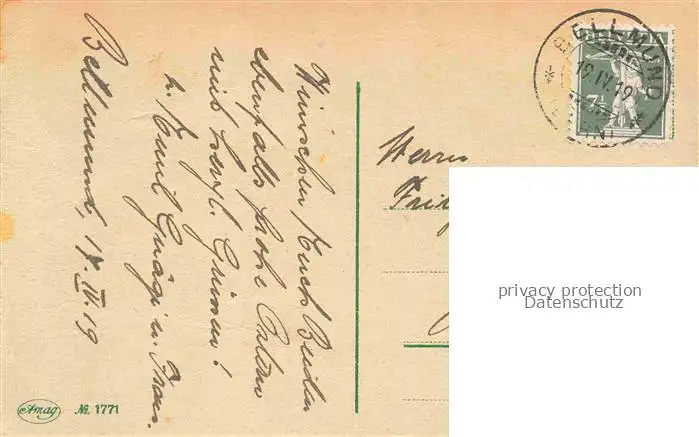 Wünschen Euch Beiden
ebenfalls frohe Ostern
mit herzl. Grüssen!
Emil Gnägi u. Frau.
Bellmund, 17. IV. 19
Herrn
BELLMUND
19.IV.19
7½
privacy protection
Datenschutz
Amag
№ 1771